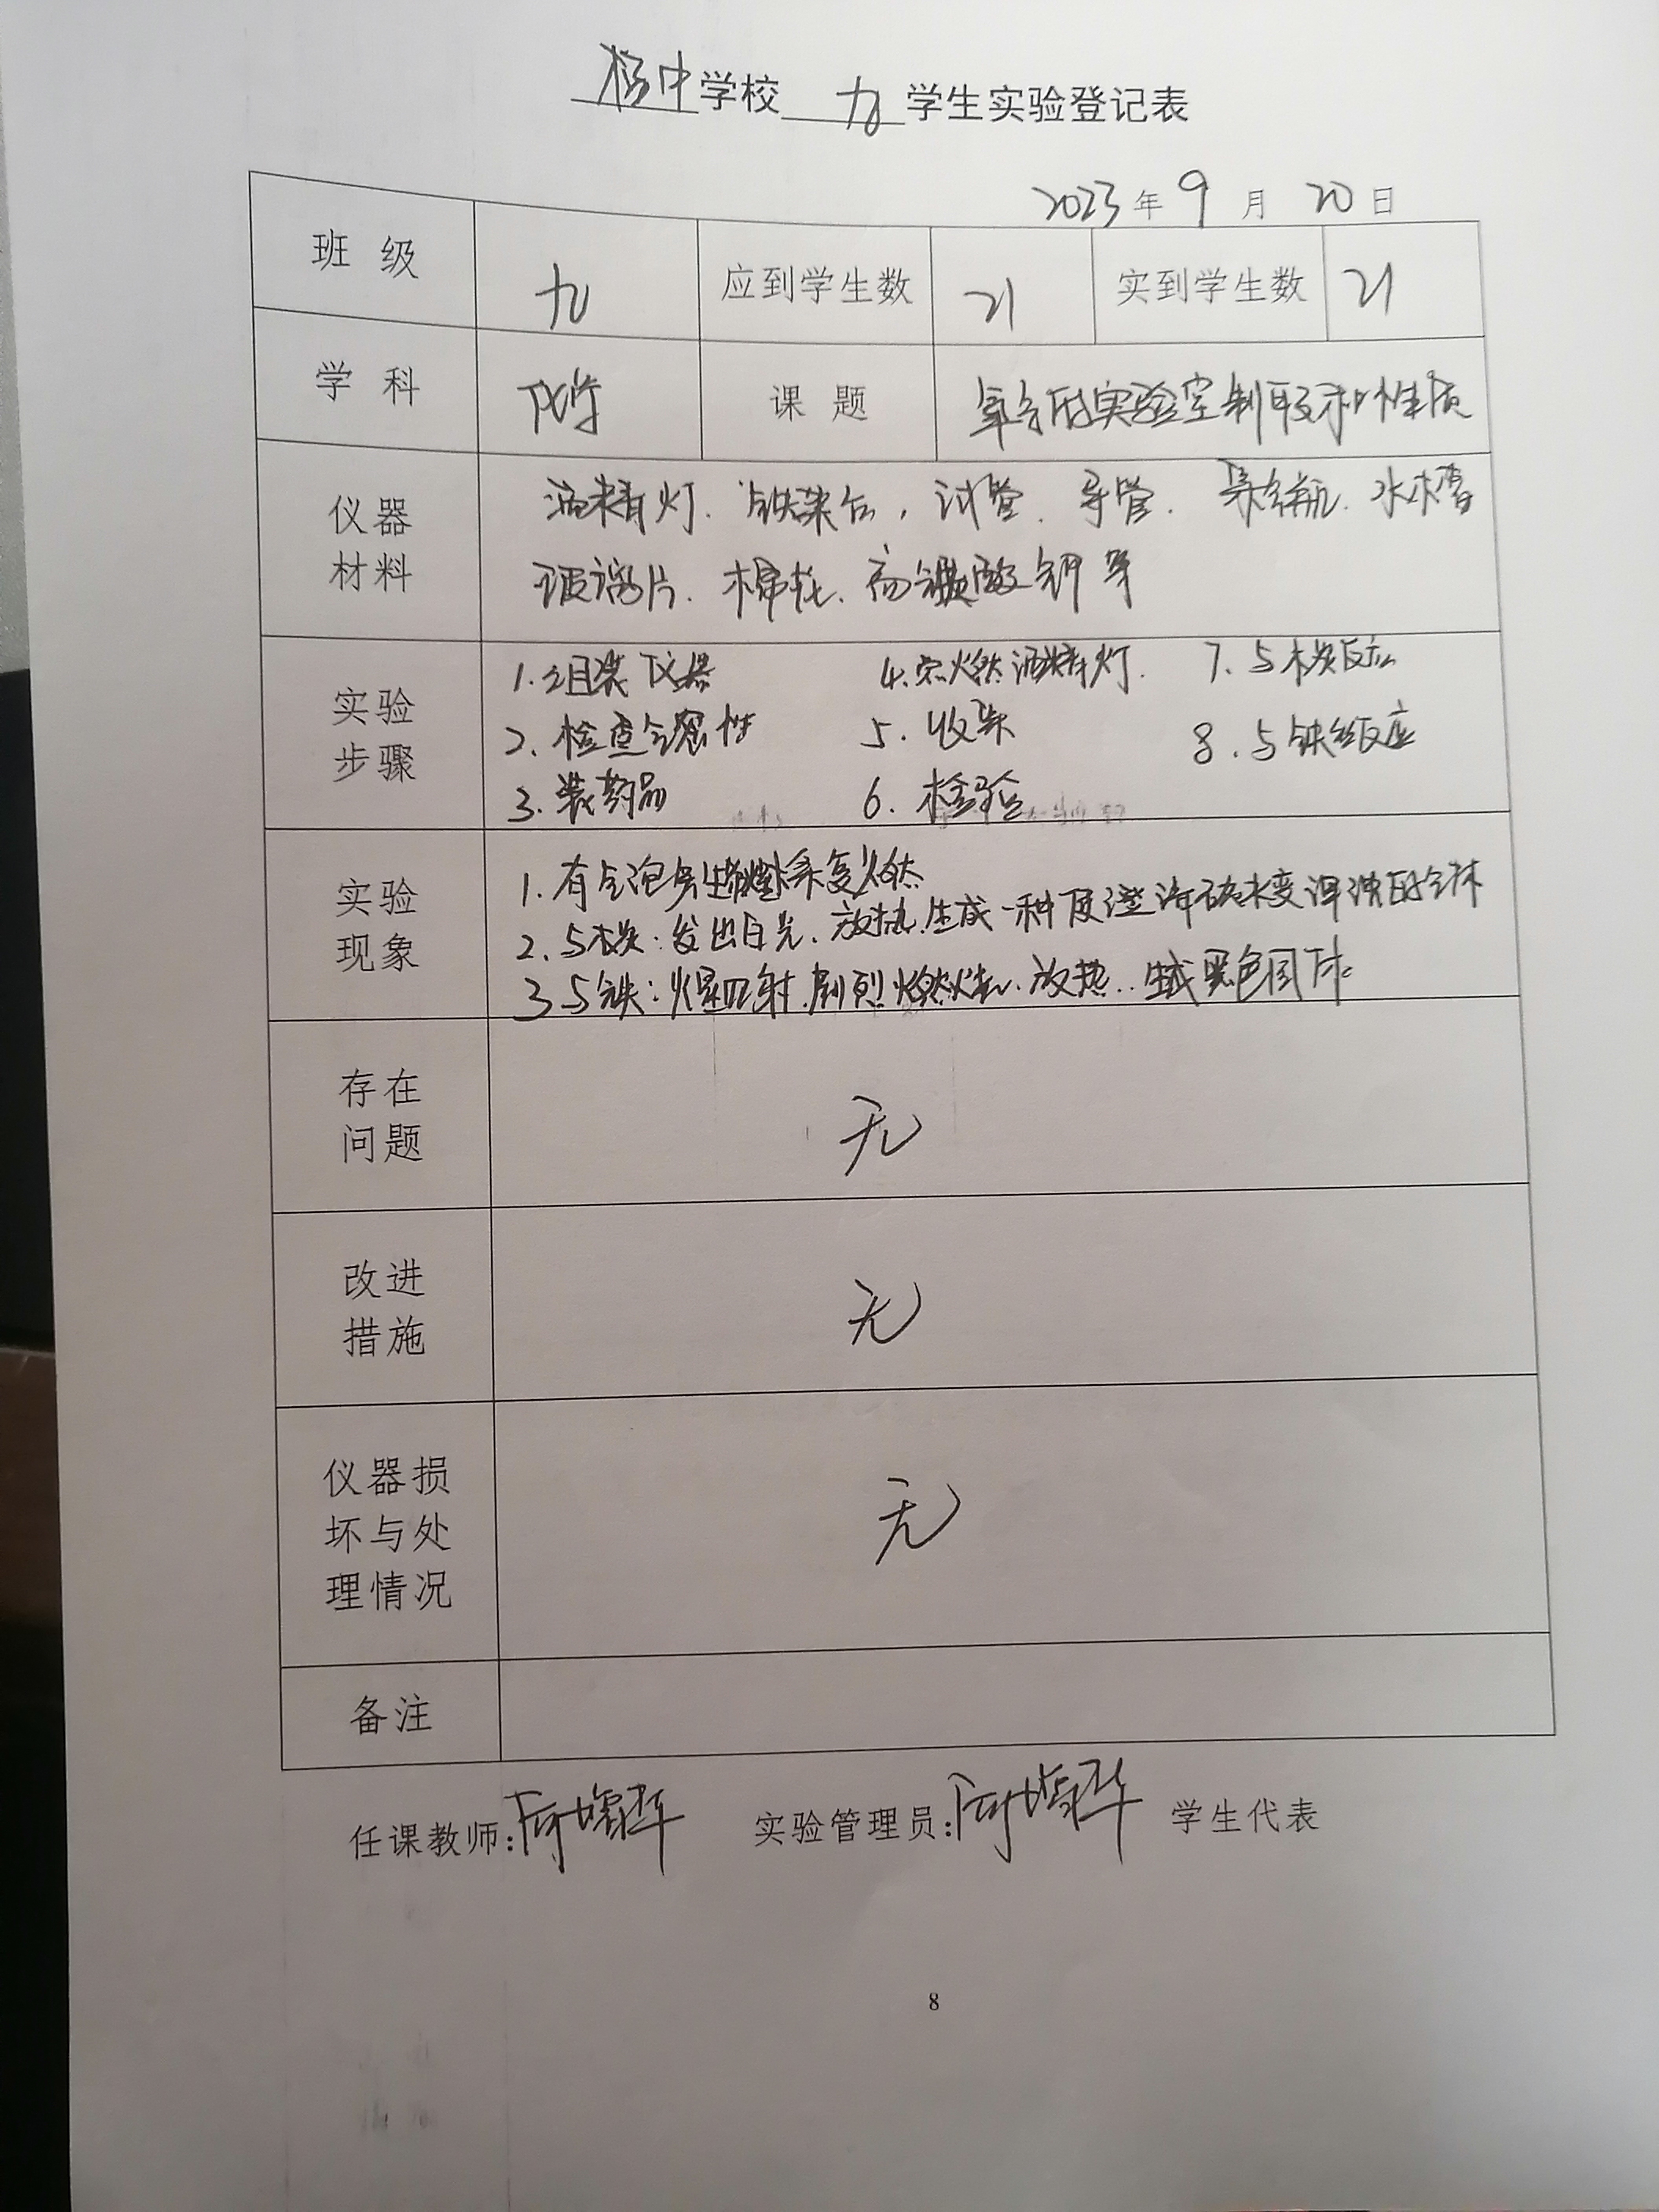 杨中学校 九 学生实验登记表
2023年9月20日
班级 九 应到学生数 21 实到学生数 21
学科 化学 课题 氧气的实验室制取和性质
仪器材料 酒精灯、铁架台,试管、导管、集气瓶、水槽
玻璃片、棉花、高锰酸钾等
实验步骤 1.组装仪器 4.点燃酒精灯. 7.与木炭反应
2.检查气密性 5.收集 8.与铁丝反应
3.装药品 6.检验
实验现象 1.有气泡产生 复燃
2.与木炭:发出白光、放热.生成一种使澄清石灰水变浑浊的气体
3.与铁:火星四射.剧烈燃烧.放热..生成黑色固体
存在问题 无
改进措施 无
仪器损坏与处理情况 无
备注
任课教师: 实验管理员: 学生代表
8